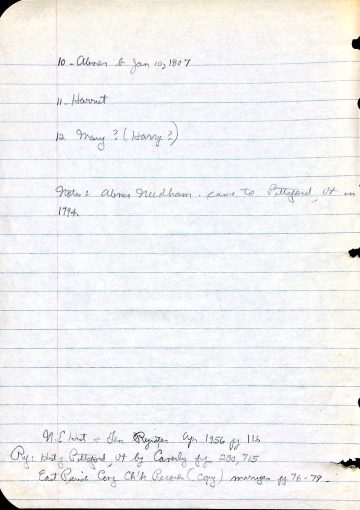 10 - Abner b Jan 10, 1807
11 - Harriet
12 Mary? (Harry?)
Notes: Abner Needham came to Pittsford, Vt in
1794.
N. E. Hist & Gen Register Apr 1956 pg 116
Hist of Pittsford, Vt by Caverly pg 250, 715
East Parish Cong Ch'h Records (copy) marriages pg 76-79